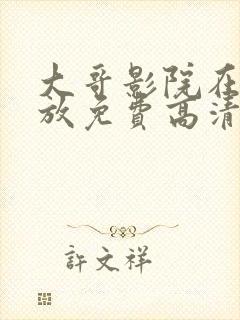 大哥影院在
放免费高清
許文祥